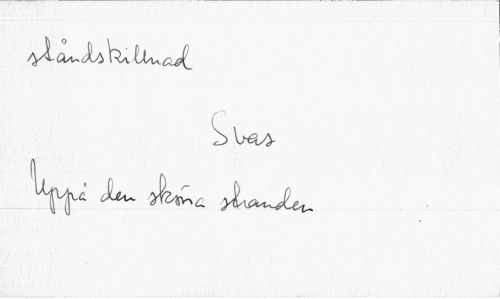 ståndskillnad
Svas
Uppå den sköna stranden